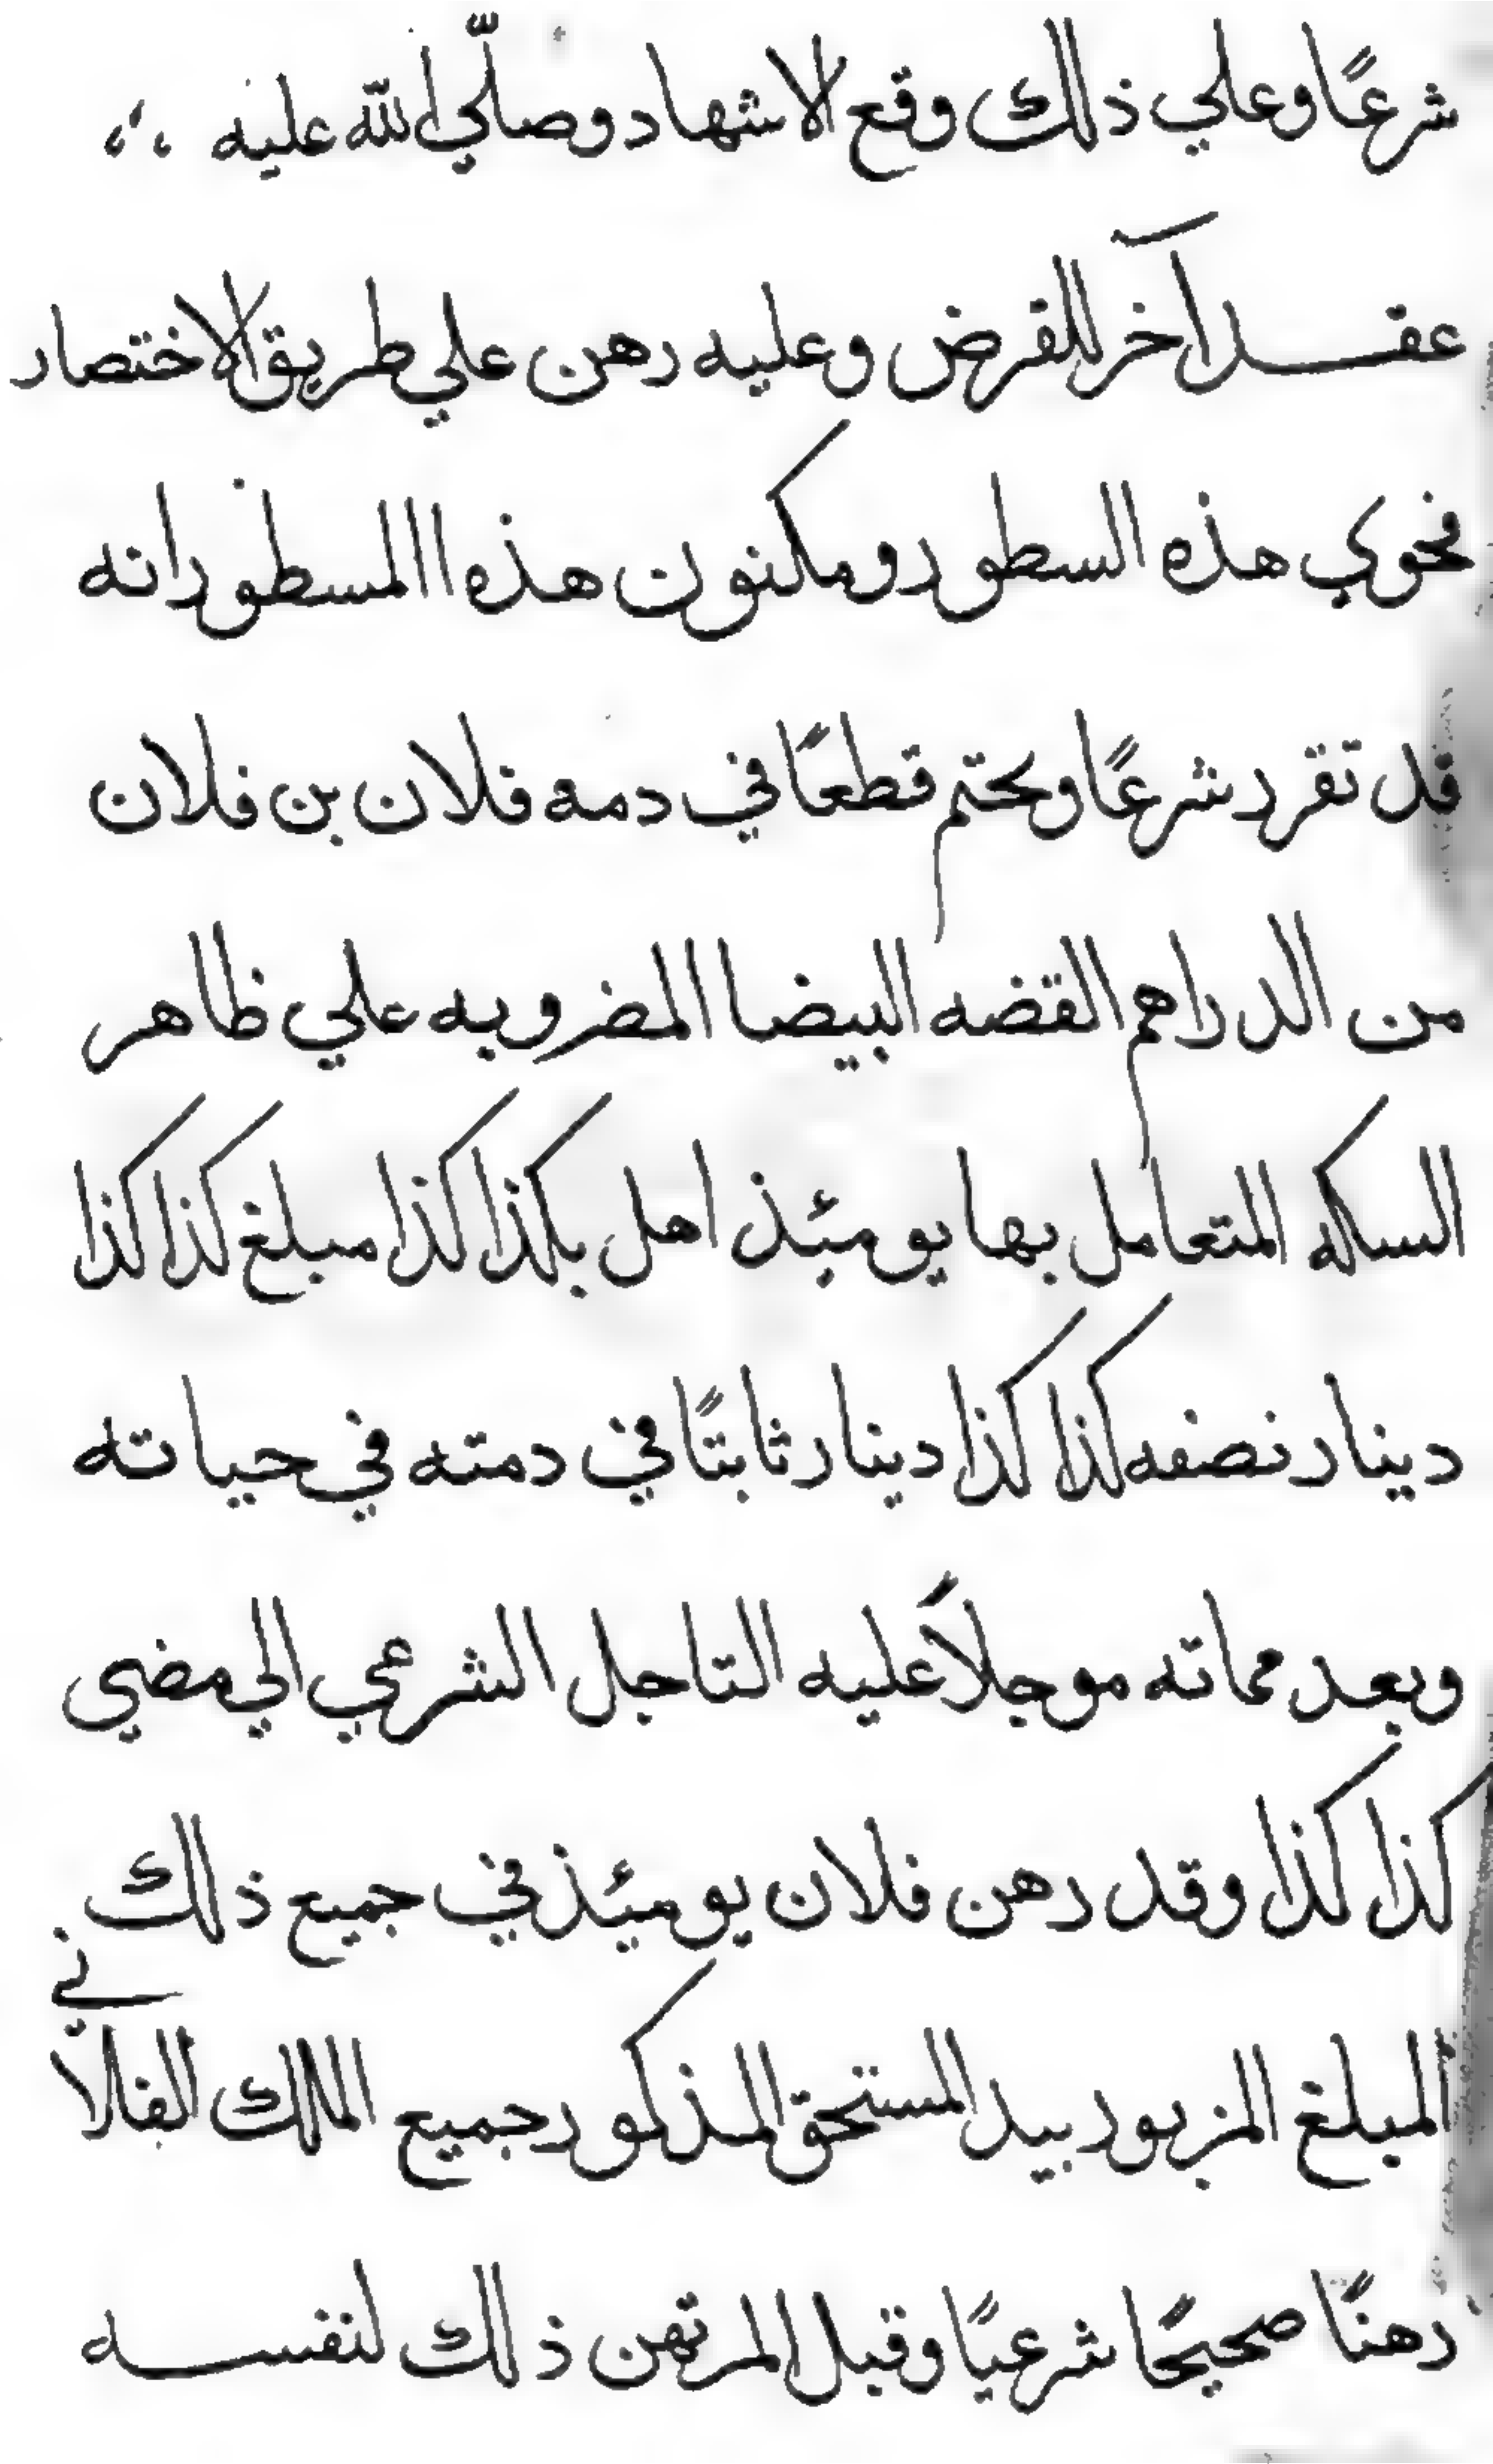 شرعًا وعلي ذلك وقع الاشهاد وصلّي الله عليه
عقد آخر للقرض وعليه رهن علي طريق الاختصار
فحوي هذه السطور ومكنون هذه االمسطور انه
قد تقرر شرعًا وتحتم قطعًا في دمه فلان بن فلان
من الدراهم القضه البيضا المضروبه علي ظاهر
السكه المتعامل بها يومئذ اهل بكذا كذا مبلغ كذا كذا
دينار نصفه كذا كذا دينار ثابتًا في دمته في حياته
وبعد مماته موجلاً عليه التاجل الشرعي الي مضي
كذا كذا وقد رهن فلان يومئذ في جميع ذلك
المبلغ المزبور بيد المستحق المذكور جميع الملك الفلاني
رهنًا صحيحًا شرعيًا وقبل المرتهن ذلك لنفسه